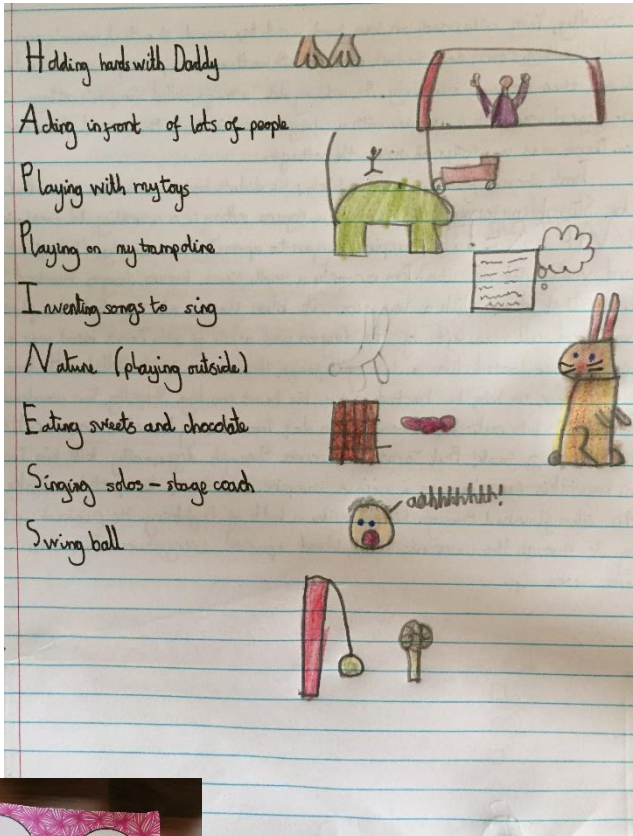 Holding hands with Daddy
Acting infront of lots of people
Playing with my toys
Playing on my trampoline
Inventing songs to sing
Nature (playing outside)
Eating sweets and chocolate
Singing solos - stage coach
aahhhhhhh!
Swing ball